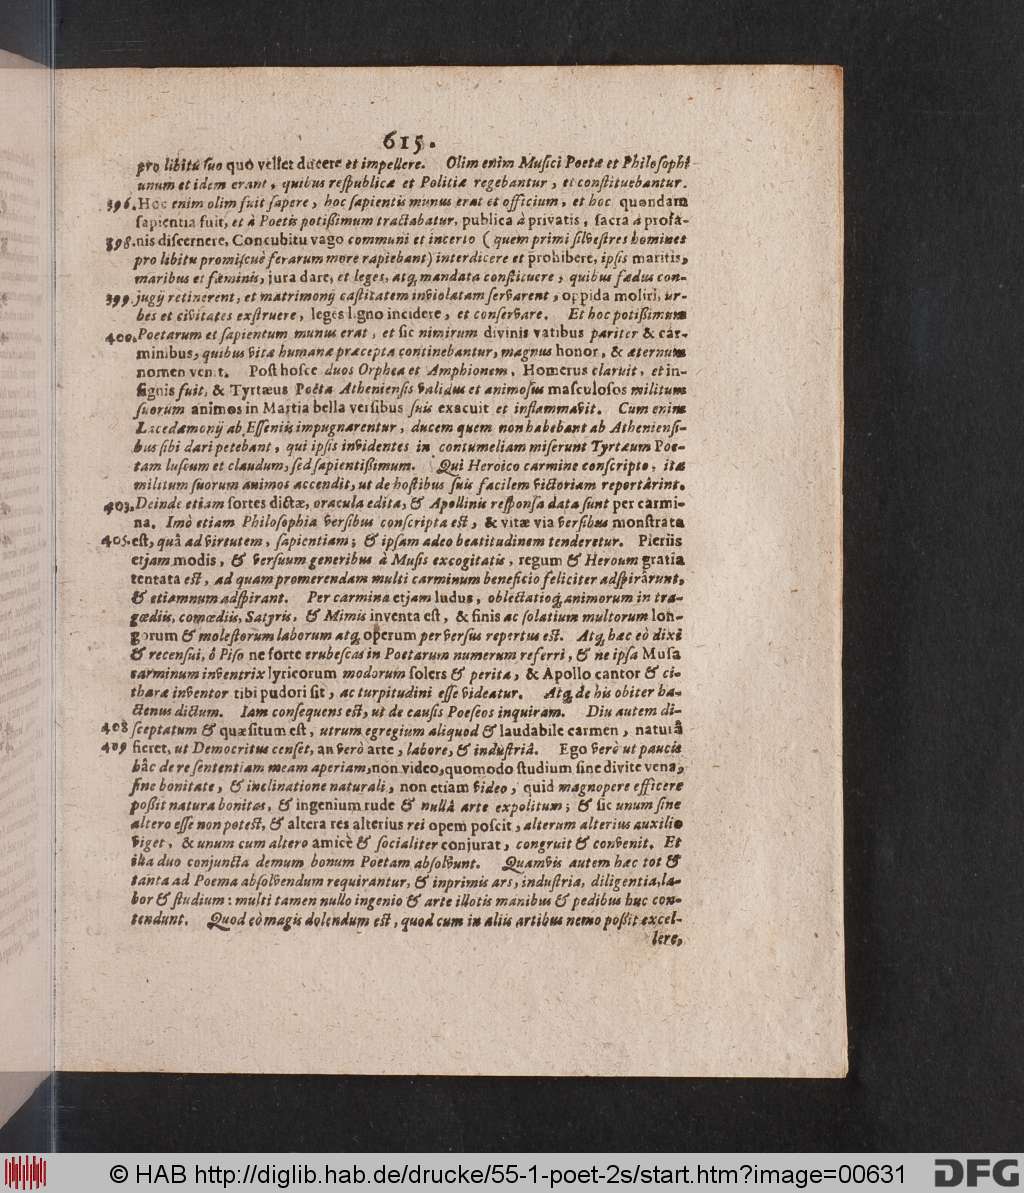 615.
pro libitu suo quo vellet ducere et impellere. Olim enim Musici Poetæ et Philosophi
unum et idem erant, quibus respublicæ et Politiæ regebantur, et constituebantur.
396. Hoc enim olim fuit sapere, hoc sapientis munus erat et officium, et hoc quondam
sapientia fuit, et à Poetis potißimum tractabatur, publica à privatis, sacra à profa-
398. nis discernere, Concubitu vago communi et incerto ( quem primi silvestres homines
pro libitu promiscuè ferarum more rapiebant) interdicere et prohibere, ipsis maritis,
maribus et fæminis, jura dare, et leges, atq; mandata constituere, quibus fœdus con-
399. jugij retinerent, et matrimonij castitatem inviolatam servarent, oppida moliri, ur-
bes et civitates exstruere, leges ligno incidere, et conservare. Et hoc potißimum
400. Poetarum et sapientum munus erat, et sic nimirum divinis vatibus pariter & car-
minibus, quibus vitæ humanæ præcepta continebantur, magnus honor, & æternum
nomen venit. Post hosce duos Orphea et Amphionem, Homerus claruit, et in-
signis fuit, & Tyrtæus Poëta Atheniensis validus et animosus masculosos militum
suorum animos in Martia bella versibus suis exacuit et inflammavit. Cum enim
Lacedæmonij ab Esseniis impugnarentur, ducem quem non habebant ab Atheniensi-
bus sibi dari petebant, qui ipsis invidentes in contumeliam miserunt Tyrtæum Poe-
tam luscum et claudum, sed sapientißimum. Qui Heroico carmine conscripto, ita
militum suorum animos accendit, ut de hostibus suis facilem victoriam reportârint.
403. Deinde etiam sortes dictæ, oracula edita, & Apollinis responsa data sunt per carmi-
na. Imò etiam Philosophia versibus conscripta est, & vitæ via versibus monstrata
405. est, quâ ad virtutem, sapientiam; & ipsam adeo beatitudinem tenderetur. Pieriis
etjam modis, & versuum generibus à Musis excogitatis, regum & Heroum gratia
tentata est, ad quam promerendam multi carminum beneficio feliciter adspirârunt,
& etiamnum adspirant. Per carmina etjam ludus, oblectatioq; animorum in tra-
gœdiis, comœdiis, Satyris, & Mimis inventa est, & finis ac solatium multorum lon-
gorum & molestorum laborum atq; operum per versus repertus est. Atq; hæc eò dixi
& recensui, ô Piso ne forte erubescas in Poetarum numerum referri, & ne ipsa Musa
carminum inventrix lyricorum modorum solers & perita, & Apollo cantor & ci-
tharæ inventor tibi pudori sit, ac turpitudini esse videatur. Atq; de his obiter ha-
ctenus dictum. Iam consequens est, ut de causis Poeseos inquiram. Diu autem di-
408 sceptatum & quæsitum est, utrum egregium aliquod & laudabile carmen, naturâ
409 fieret, ut Democritus censet, an verò arte, labore, & industriâ. Ego verò ut paucis
hâc de re sententiam meam aperiam, non video, quomodo studium sine divite vena,
sine bonitate, & inclinatione naturali, non etiam video, quid magnopere efficere
poßit natura bonitas, & ingenium rude & nullâ arte expolitum; & sic unum sine
altero esse non potest, & altera res alterius rei opem poscit, alterum alterius auxilio
viget, & unum cum altero amicè & socialiter conjurat, congruit & convenit. Et
illa duo conjuncta demum bonum Poetam absolvunt. Quamvis autem hæc tot &
tanta ad Poema absolvendum requirantur, & inprimis ars, industria, diligentia, la-
bor & studium: multi tamen nullo ingenio & arte illotis manibus & pedibus huc con-
tendunt. Quod eò magis dolendum est, quod cum in aliis artibus nemo poßit excel-
lere,
© HAB http://diglib.hab.de/drucke/55-1-poet-2s/start.htm?image=00631
DFG